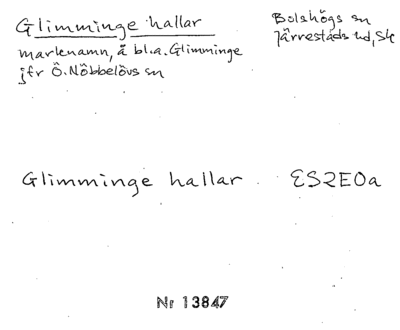 Glimminge hallar
Bolshögs sn
Järrestads hd, Sk
marknamn, å bl.a. Glimminge
jfr Ö. Nöbbelövs sn
Glimminge hallar ES2E0a
Nr 13847